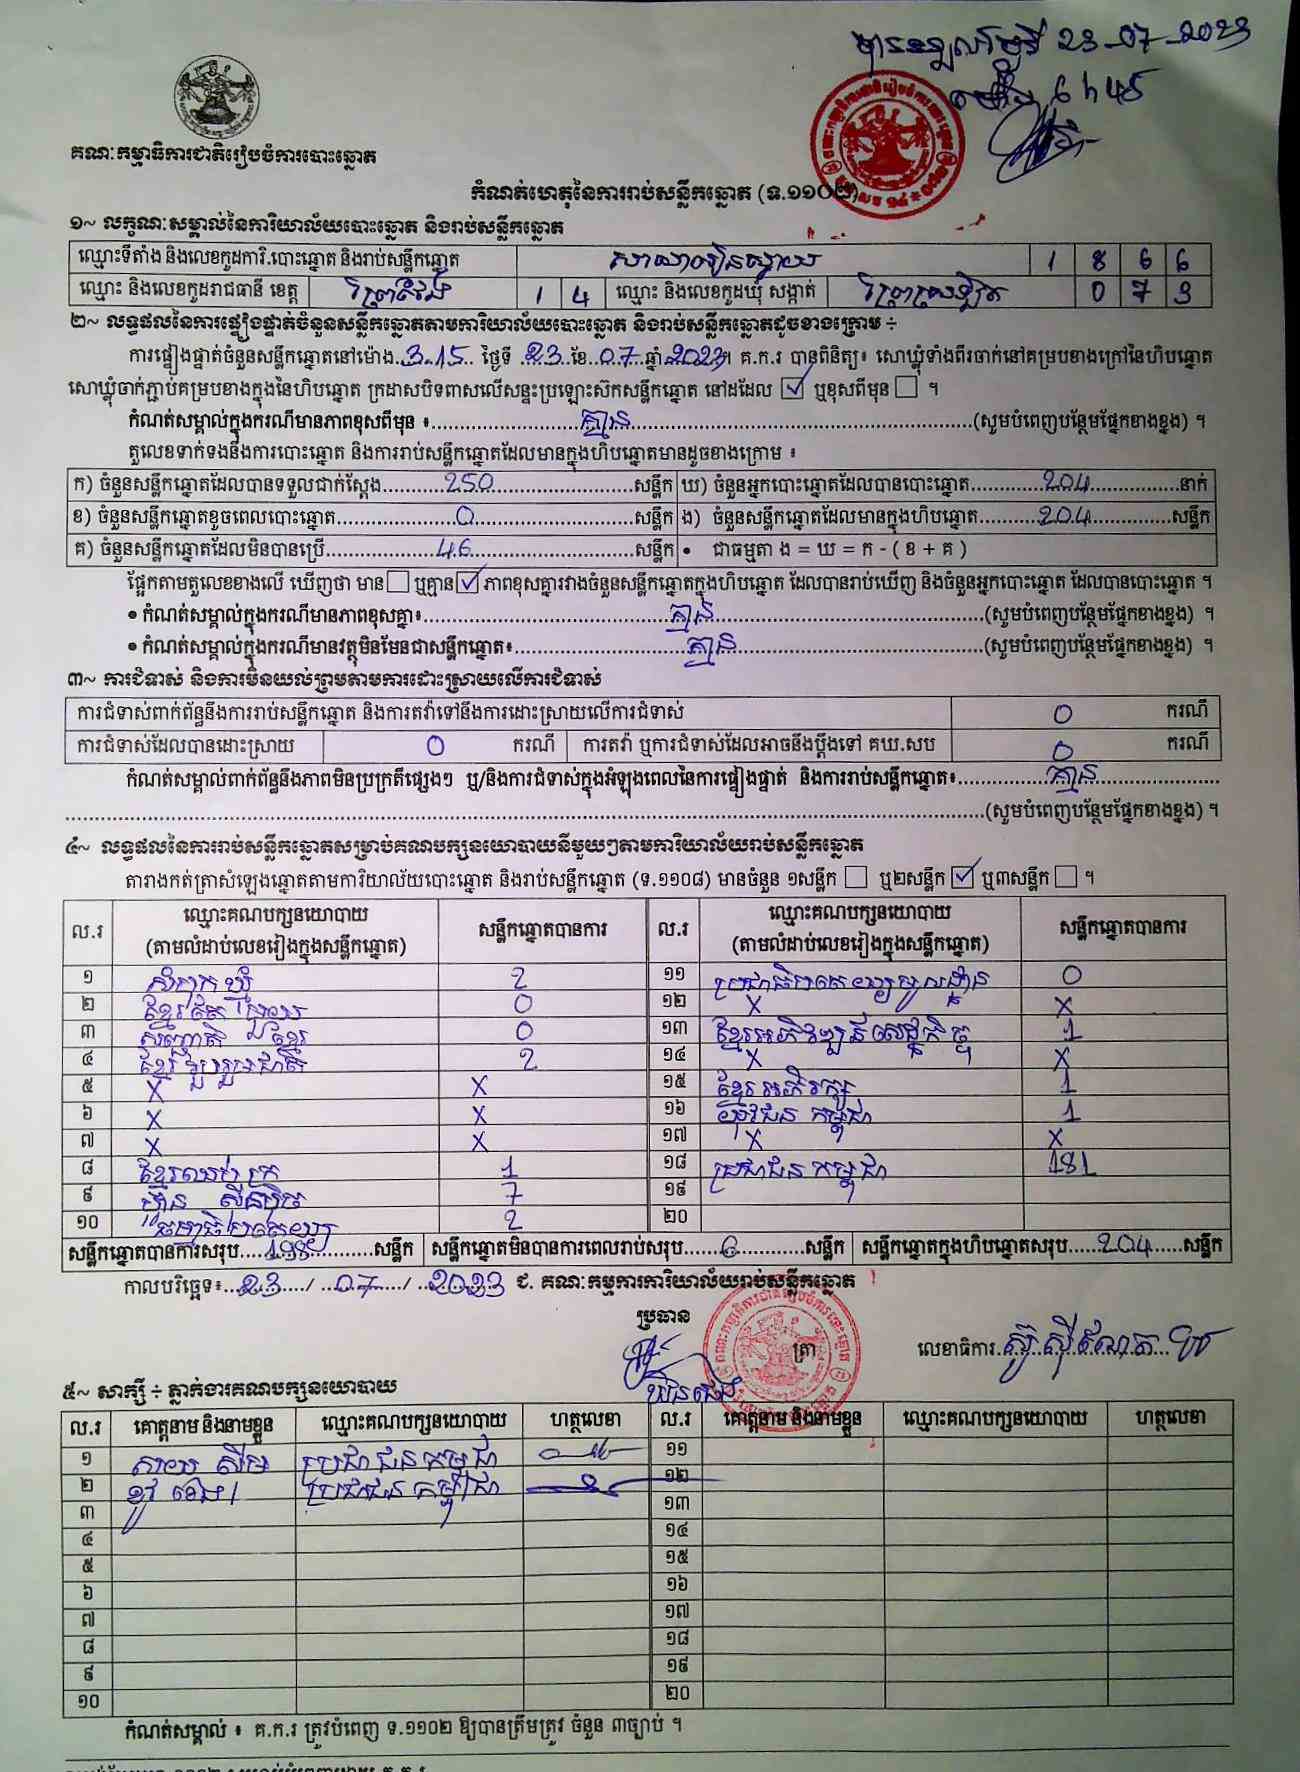 23-07-2023
6 h 45
គណៈកម្មាធិការជាតិរៀបចំការបោះឆ្នោត
កំណត់ហេតុនៃការរាប់សន្លឹកឆ្នោត (ទ.១១០២)
១~ លក្ខណៈសម្គាល់នៃការិយាល័យបោះឆ្នោត និងរាប់សន្លឹកឆ្នោត
ឈ្មោះទីតាំង និងលេខកូដការិ.បោះឆ្នោត និងរាប់សន្លឹកឆ្នោត 1 8 6 6
ឈ្មោះ និងលេខកូដរាជធានី ខេត្ត ព្រៃវែង 1 4 ឈ្មោះ និងលេខកូដឃុំ សង្កាត់ 0 7 3
២~ លទ្ធផលនៃការផ្ទៀងផ្ទាត់ចំនួនសន្លឹកឆ្នោតតាមការិយាល័យបោះឆ្នោត និងរាប់សន្លឹកឆ្នោតដូចខាងក្រោម ÷
ការផ្ទៀងផ្ទាត់ចំនួនសន្លឹកឆ្នោតនៅម៉ោង..3.15.. ថ្ងៃទី .23. ខែ.07.ឆ្នាំ 2023។ គ.ក.រ បានពិនិត្យ៖ សោឃ្លុំទាំងពីរចាក់នៅគម្របខាងក្រៅនៃហិបឆ្នោត
សោឃ្លុំចាក់ភ្ជាប់គម្របខាងក្នុងនៃហិបឆ្នោត ក្រដាសបិទពាសលើសន្ទះប្រឡោះស៊កសន្លឹកឆ្នោត នៅដដែល ☑ ឬខុសពីមុន ☐ ។
កំណត់សម្គាល់ក្នុងករណីមានភាពខុសពីមុន ៖..........គ្មាន..........(សូមបំពេញបន្ថែមផ្នែកខាងខ្នង) ។
តួលេខទាក់ទងនឹងការបោះឆ្នោត និងការរាប់សន្លឹកឆ្នោតដែលមានក្នុងហិបឆ្នោតមានដូចខាងក្រោម ៖
ក) ចំនួនសន្លឹកឆ្នោតដែលបានទទួលជាក់ស្តែង..........250..........សន្លឹក ឃ) ចំនួនអ្នកបោះឆ្នោតដែលបានបោះឆ្នោត..........204..........នាក់
ខ) ចំនួនសន្លឹកឆ្នោតខូចពេលបោះឆ្នោត..........0..........សន្លឹក ង) ចំនួនសន្លឹកឆ្នោតដែលមានក្នុងហិបឆ្នោត..........204..........សន្លឹក
គ) ចំនួនសន្លឹកឆ្នោតដែលមិនបានប្រើ..........46..........សន្លឹក • ជាធម្មតា ង = ឃ = ក - ( ខ + គ )
ផ្អែកតាមតួលេខខាងលើ ឃើញថា មាន☐ ឬគ្មាន☑ ភាពខុសគ្នារវាងចំនួនសន្លឹកឆ្នោតក្នុងហិបឆ្នោត ដែលបានរាប់ឃើញ និងចំនួនអ្នកបោះឆ្នោត ដែលបានបោះឆ្នោត ។
• កំណត់សម្គាល់ក្នុងករណីមានភាពខុសគ្នា៖..........គ្មាន..........(សូមបំពេញបន្ថែមផ្នែកខាងខ្នង) ។
• កំណត់សម្គាល់ក្នុងករណីមានវត្ថុមិនមែនជាសន្លឹកឆ្នោត៖..........គ្មាន..........(សូមបំពេញបន្ថែមផ្នែកខាងខ្នង) ។
៣~ ការជំទាស់ និងការមិនយល់ព្រមតាមការដោះស្រាយលើការជំទាស់
ការជំទាស់ពាក់ព័ន្ធនឹងការរាប់សន្លឹកឆ្នោត និងការតវ៉ាទៅនឹងការដោះស្រាយលើការជំទាស់ 0 ករណី
ការជំទាស់ដែលបានដោះស្រាយ 0 ករណី ការតវ៉ា ឬការជំទាស់ដែលអាចនឹងប្តឹងទៅ គឃ.សប 0 ករណី
កំណត់សម្គាល់ពាក់ព័ន្ធនឹងភាពមិនប្រក្រតីផ្សេងៗ ឬ/និងការជំទាស់ក្នុងអំឡុងពេលនៃការផ្ទៀងផ្ទាត់ និងការរាប់សន្លឹកឆ្នោត៖..........គ្មាន..........
..........(សូមបំពេញបន្ថែមផ្នែកខាងខ្នង) ។
៤~ លទ្ធផលនៃការរាប់សន្លឹកឆ្នោតសម្រាប់គណបក្សនយោបាយនីមួយៗតាមការិយាល័យរាប់សន្លឹកឆ្នោត
តារាងកត់ត្រាសំឡេងឆ្នោតតាមការិយាល័យបោះឆ្នោត និងរាប់សន្លឹកឆ្នោត (ទ.១១០៨) មានចំនួន ១សន្លឹក ☐ ឬ២សន្លឹក ☑ ឬ៣សន្លឹក ☐ ។
ល.រ ឈ្មោះគណបក្សនយោបាយ (តាមលំដាប់លេខរៀងក្នុងសន្លឹកឆ្នោត) សន្លឹកឆ្នោតបានការ ល.រ ឈ្មោះគណបក្សនយោបាយ (តាមលំដាប់លេខរៀងក្នុងសន្លឹកឆ្នោត) សន្លឹកឆ្នោតបានការ
១ សំបុកឃ្មុំ 2 ១១ ប្រជាធិបតេយ្យមូលដ្ឋាន 0
២ ខ្មែរតែមួយ 0 ១២ X X
៣ សញ្ជាតិខ្មែរ 0 ១៣ ខ្មែរអភិវឌ្ឍន៍សេដ្ឋកិច្ច 1
៤ ខ្មែររួបរួមជាតិ 2 ១៤ X X
៥ X X ១៥ ខ្មែរអភិរក្ស 1
៦ X X ១៦ យុវជនកម្ពុជា 1
៧ X X ១៧ X X
៨ ខ្មែរឈប់ក្រ 1 ១៨ ប្រជាជនកម្ពុជា 181
៩ ហ៊្វុនស៊ិនប៉ិច 7 ១៩
១០ ធម្មាធិបតេយ្យ 2 ២០
សន្លឹកឆ្នោតបានការសរុប.....198..........សន្លឹក សន្លឹកឆ្នោតមិនបានការពេលរាប់សរុប.....6..........សន្លឹក សន្លឹកឆ្នោតក្នុងហិបឆ្នោតសរុប.....204.....សន្លឹក
កាលបរិច្ឆេទ៖..23../..07../..2023 ជ. គណៈកម្មការការិយាល័យរាប់សន្លឹកឆ្នោត
ប្រធាន
ត្រា
លេខាធិការ
៥~ សាក្សី ÷ ភ្នាក់ងារគណបក្សនយោបាយ
ល.រ គោត្តនាម និងនាមខ្លួន ឈ្មោះគណបក្សនយោបាយ ហត្ថលេខា ល.រ គោត្តនាម និងនាមខ្លួន ឈ្មោះគណបក្សនយោបាយ ហត្ថលេខា
១ ប្រជាជនកម្ពុជា ១១
២ ប្រជាជនកម្ពុជា ១២
៣ ១៣
៤ ១៤
៥ ១៥
៦ ១៦
៧ ១៧
៨ ១៨
៩ ១៩
១០ ២០
កំណត់សម្គាល់ ៖ គ.ក.រ ត្រូវបំពេញ ទ.១១០២ ឱ្យបានត្រឹមត្រូវ ចំនួន ៣ច្បាប់ ។